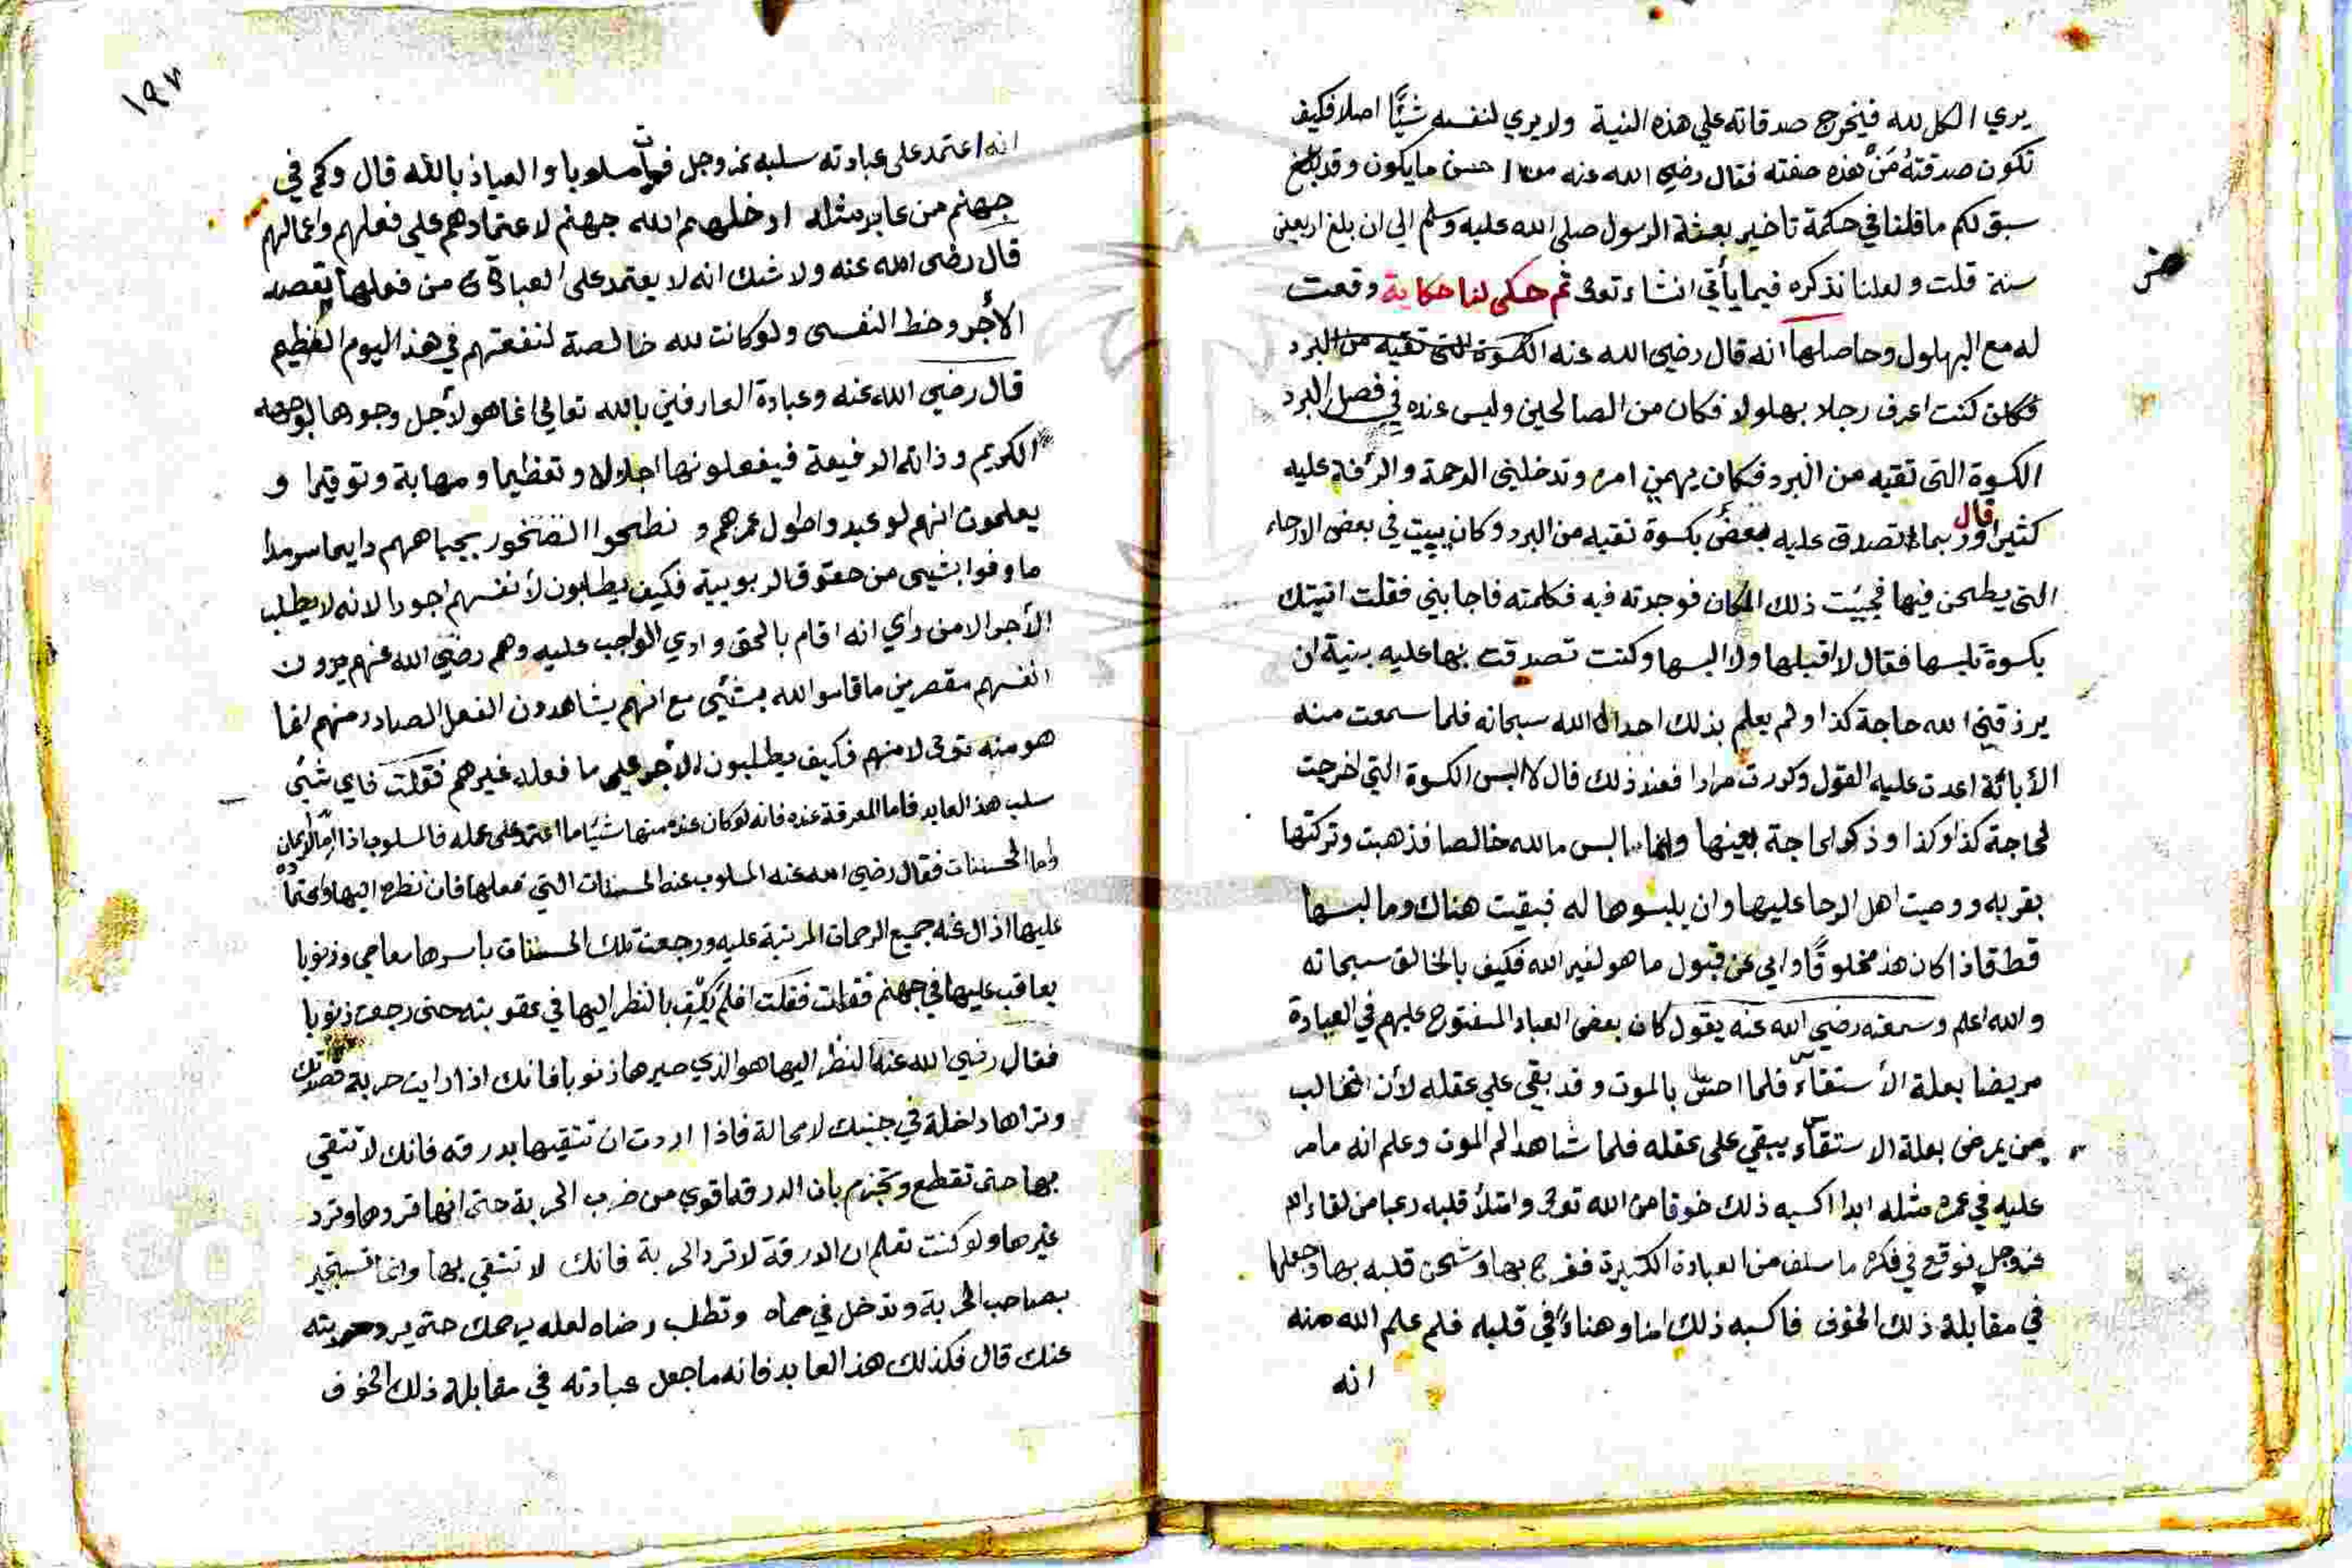 يري الكل لله فيخرج صدقاته علي هذه النية ولا يري لنفسه شيًّا اصلا فكيف
تكون صدقتهُ مَنْ هذه صفته فقال رضي الله عنه احسن ما يكون وقد
سبق لكم ما قلنا في حكمة تاخير بعثة الرسول صلي الله عليه وسلم الي ان بلغ اربعين
سنة قلت ولعلنا نذكره فيما يأتي انشاء تعو ثم حكي لنا حكاية وقعت
له مع البهلول وحاصلها انه قال رضي الله عنه الكسوة التي تقيه من البرد
كنت اعرف رجلا بهلولا فكان من الصالحين وليس عنده في فصل البرد
الكسوة التي تقيه من البرد فكان يهمني امره وتدخلني الرحمة والرأفة عليه
كثيرا قال وربما اتصدق عليه بعض بكسوة تقيه من البرد وكان يبيت في بعض الارحاء
التي يطحن فيها فجيئت ذلك المكان فوجدته فيه فكلمته فاجابني فقلت اتيتك
بكسوة تلبسها فقال لا اقبلها ولا البسها وكنت تصدقت بها عليه بنية ان
يرزقني الله حاجة كذا ولم يعلم بذلك احد الا الله سبحانه فلما سمعت منه
الأبائة اعدت عليه القول وكررت مرارا فعند ذلك قال لا البس الكسوة التي اخرجت
لحاجة كذا وكذا وذكر الحاجة بعينها وانما البس ما لله خالصا فذهبت وتركتها
بقربه ووصيت اهل الرحا عليها وان يلبسوها له فبقيت هناك وما لبسها
قط فاذا كان هذ مخلوقًا وابي عن قبول ما هو لغير الله فكيف بالخالق سبحانه
والله اعلم وسمعته رضي الله عنه يقول كان بعض العباد المفتوح عليهم في العبادة
مريضا بعلة الأستقاء فلما احس بالموت وقد بقي علي عقله لأن الغالب
من يمرض بعلة الاستقاء يبقي علي عقله فلما شاهد الم الموت وعلم انه ما مر
عليه في عمره مثله ابدا اكسبه ذلك خوفا من الله تعو وامتلأ قلبه رعبا من لقاء الله
عز وجل فوقع في فكره ما سلف من العبادة الكثيرة ففرح بها وشحن قلبه بها وجعلها
في مقابلة ذلك الخوف فاكسبه ذلك امنا وهناءً في قلبه فلم علم الله منه
انه
١٩٨
انه اعتمد علي عبادته سلبه عز وجل فمات مسلوبا والعياذ بالله قال وكم في
جهنم من عابد مثله ادخلهم الله جهنم لاعتمادهم علي فعلهم واعمالهم
قال رضي الله عنه ولا شك انه لا يعتمد علي العبادة من فعلها بقصد
الأجر وحظ النفس ولو كانت لله خالصة لنفعتهم في هذا اليوم العظيم
قال رضي الله عنه وعبادة العارفين بالله تعالي انما هو لأجل وجودها لوجهه
الكريم وذاته الرفيعة فيفعلونها اجلالا وتعظيما ومهابة وتوقيرا و
يعلمون انهم لو عبدوا طول عمرهم و نطحوا الصخور بجباههم دايما سرمدا
ما وفوا بشيئ من حقوق الربوبية فكيف يطلبون لأنفسهم اجورا لانه لا يطلب
الأجر الا من رأي انه اقام بالحق وادي الواجب عليه وهم رضي الله عنهم يرون
انفسهم مقصرين ما قاموا لله بشيئ مع انهم يشاهدون الفعل الصادر منهم انما
هو منه تعو لا منهم فكيف يطلبون الأجر علي ما فعله غيرهم فقلت فاي شيئ
سلب هذ العابد فاما المعرفة عنده فانه لو كان عنده منها شيًا ما اعتمد علي عمله فالمسلوب اذا اما الايمان
واما الحسنات فقال رضي الله عنه المسلوب عنه الحسنات التي فعلها فان نظره اليها واعتماده
عليها ازال عنه جميع الرحمات المرتبة عليه ورجعت تلك الحسنات باسرها معاصي وذنوبا
يعاقب عليها في جهنم فقلت افلم يكف بالنظر اليها في عقوبته حتي رجعت ذنوبا
فقال رضي الله عنه النظر اليها هو الذي صيرها ذنوبا فانك اذا رايت حربة قصدتك
وتراها داخلة في جنبك لا محالة فاذا اردت ان تتقيها بدرقه فانك لا تتقي
بها حتي تقطع وتجزم بان الدرقه اقوي من ضرب الحربة حتي انها تردها وترد
غيرها ولو كنت تعلم ان الدرقة لا ترد الحربة فانك لا تتقي بها وانما تستجير
بصاحب الحربة وتدخل في حماه وتطلب رضاه لعله يرحمك حتي يرد حربته
عنك قال فكذلك هذ العابد فانه ما جعل عبادته في مقابلة ذلك الخوف